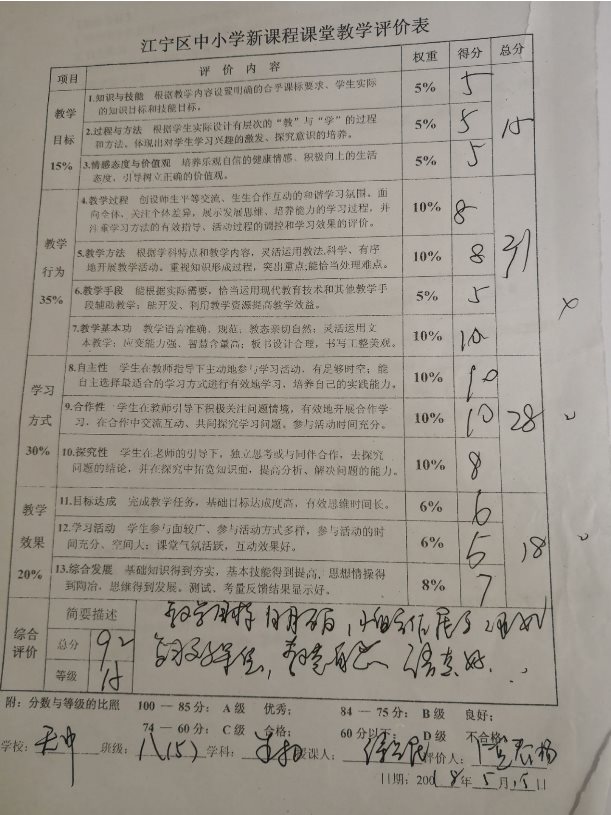 江宁区中小学新课程课堂教学评价表
项目 评价内容 权重 得分 总分
教学目标 15%
1.知识与技能 根据教学内容设置明确的合乎课标要求、学生实际 5% 5
的知识目标和技能目标。
2.过程与方法 根据学生实际设计有层次的“教”与“学”的过程 5% 5 15
和方法、体现出对学生学习兴趣的激发、探究意识的培养。
3.情感态度与价值观 培养乐观自信的健康情感、积极向上的生活 5% 5
态度、引导树立正确的价值观。
教学行为 35%
4.教学过程 创设师生平等交流、生生合作互动的和谐学习氛围,面
向全体,关注个体差异,展示发展思维、培养能力的学习过程,并 10% 8
注重学习方法的有效指导、活动过程的调控和学习效果的评价。
5.教学方法 根据学科特点和教学内容,灵活运用教法,科学、有序 10% 8 31
地开展教学活动。重视知识形成过程,突出重点,能恰当处理难点。
6.教学手段 能根据实际需要,恰当运用现代教育技术和其他教学手 5% 5
段辅助教学;能开发、利用教学资源提高教学效益。
7.教学基本功 教学语言准确、规范;教态亲切自然;灵活运用文 10% 10
本教学;应变能力强、智慧含量高;板书设计合理,书写工整美观。
学习方式 30%
8.自主性 学生在教师指导下主动地参与学习活动,有足够时空;能 10% 10
自主选择最适合的学习方式进行有效地学习,培养自己的实践能力。
9.合作性 学生在教师引导下积极关注问题情境,有效地开展合作学 10% 10 28
习,在合作中交流互动、共同探究学习问题。参与活动时间充分。
10.探究性 学生在老师的引导下,独立思考或与同伴合作,去探究 10% 8
问题的结论,并在探究中拓宽知识面,提高分析、解决问题的能力。
教学效果 20%
11.目标达成 完成教学任务,基础目标达成度高,有效思维时间长。 6% 6
12.学习活动 学生参与面较广、参与活动方式多样,参与活动的时 6% 5 18
间充分、空间大;课堂气氛活跃,互动效果好。
13.综合发展 基础知识得到夯实,基本技能得到提高,思想情操得 8% 7
到陶冶,思维得到发展。测试、考量反馈结果显示好。
综合评价 简要描述 教学目标明确
总分 92
等级 A
附:分数与等级的比照 100 — 85分:A级 优秀; 84 — 75分:B级 良好;
74 — 60分:C级 合格; 60分以下:D级 不合格
学校: 班级:八(5) 学科: 授课人: 评价人:
日期:2018年5月15日